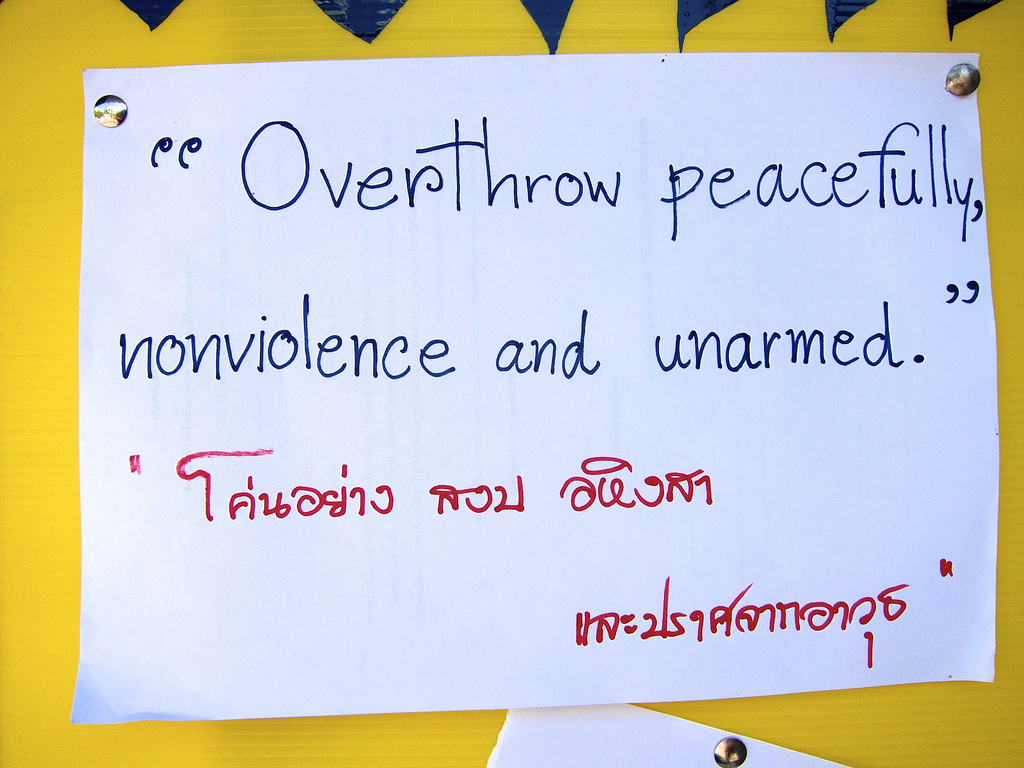 “Overthrow peacefully,
nonviolence and unarmed.”
"โค่นอย่าง สงบ อหิงสา
และปราศจากอาวุธ"